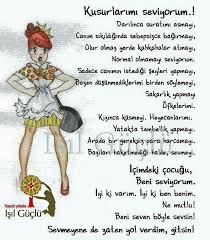 Kusurlarımı seviyorum.!
Darılınca suratımı asmayı,
Canım sıkıldığında sebepsizce bağırmayı,
Olur olmaz yerde kahkahalar atmayı,
Normal olmamayı seviyorum.
Sadece canımın istediği şeyleri yapmayı,
Bazen düşünmediklerimi birden söylemeyi,
Sakarlık yapmayı
Öfkelerimi.
Kızınca küsmeyi. Heyecanlarımı.
Yatakta tembellik yapmayı
Arada bir gereksiz para harcamayı,
Bayılan hareketindiği halde, sevmeyi.
İçimdeki çocuğu,
Beni seviyorum.
İyi ki varım. İyi ki ben benim.
Ne mutlu!
Beni seven böyle sevsin!
Sevmeyene de zaten yol verdim, gitsin!
Hayatın yolcusu
Işıl Güçlü